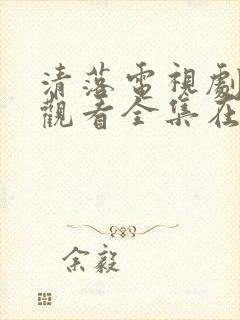 清落電視劇
觀看全集在
余毅